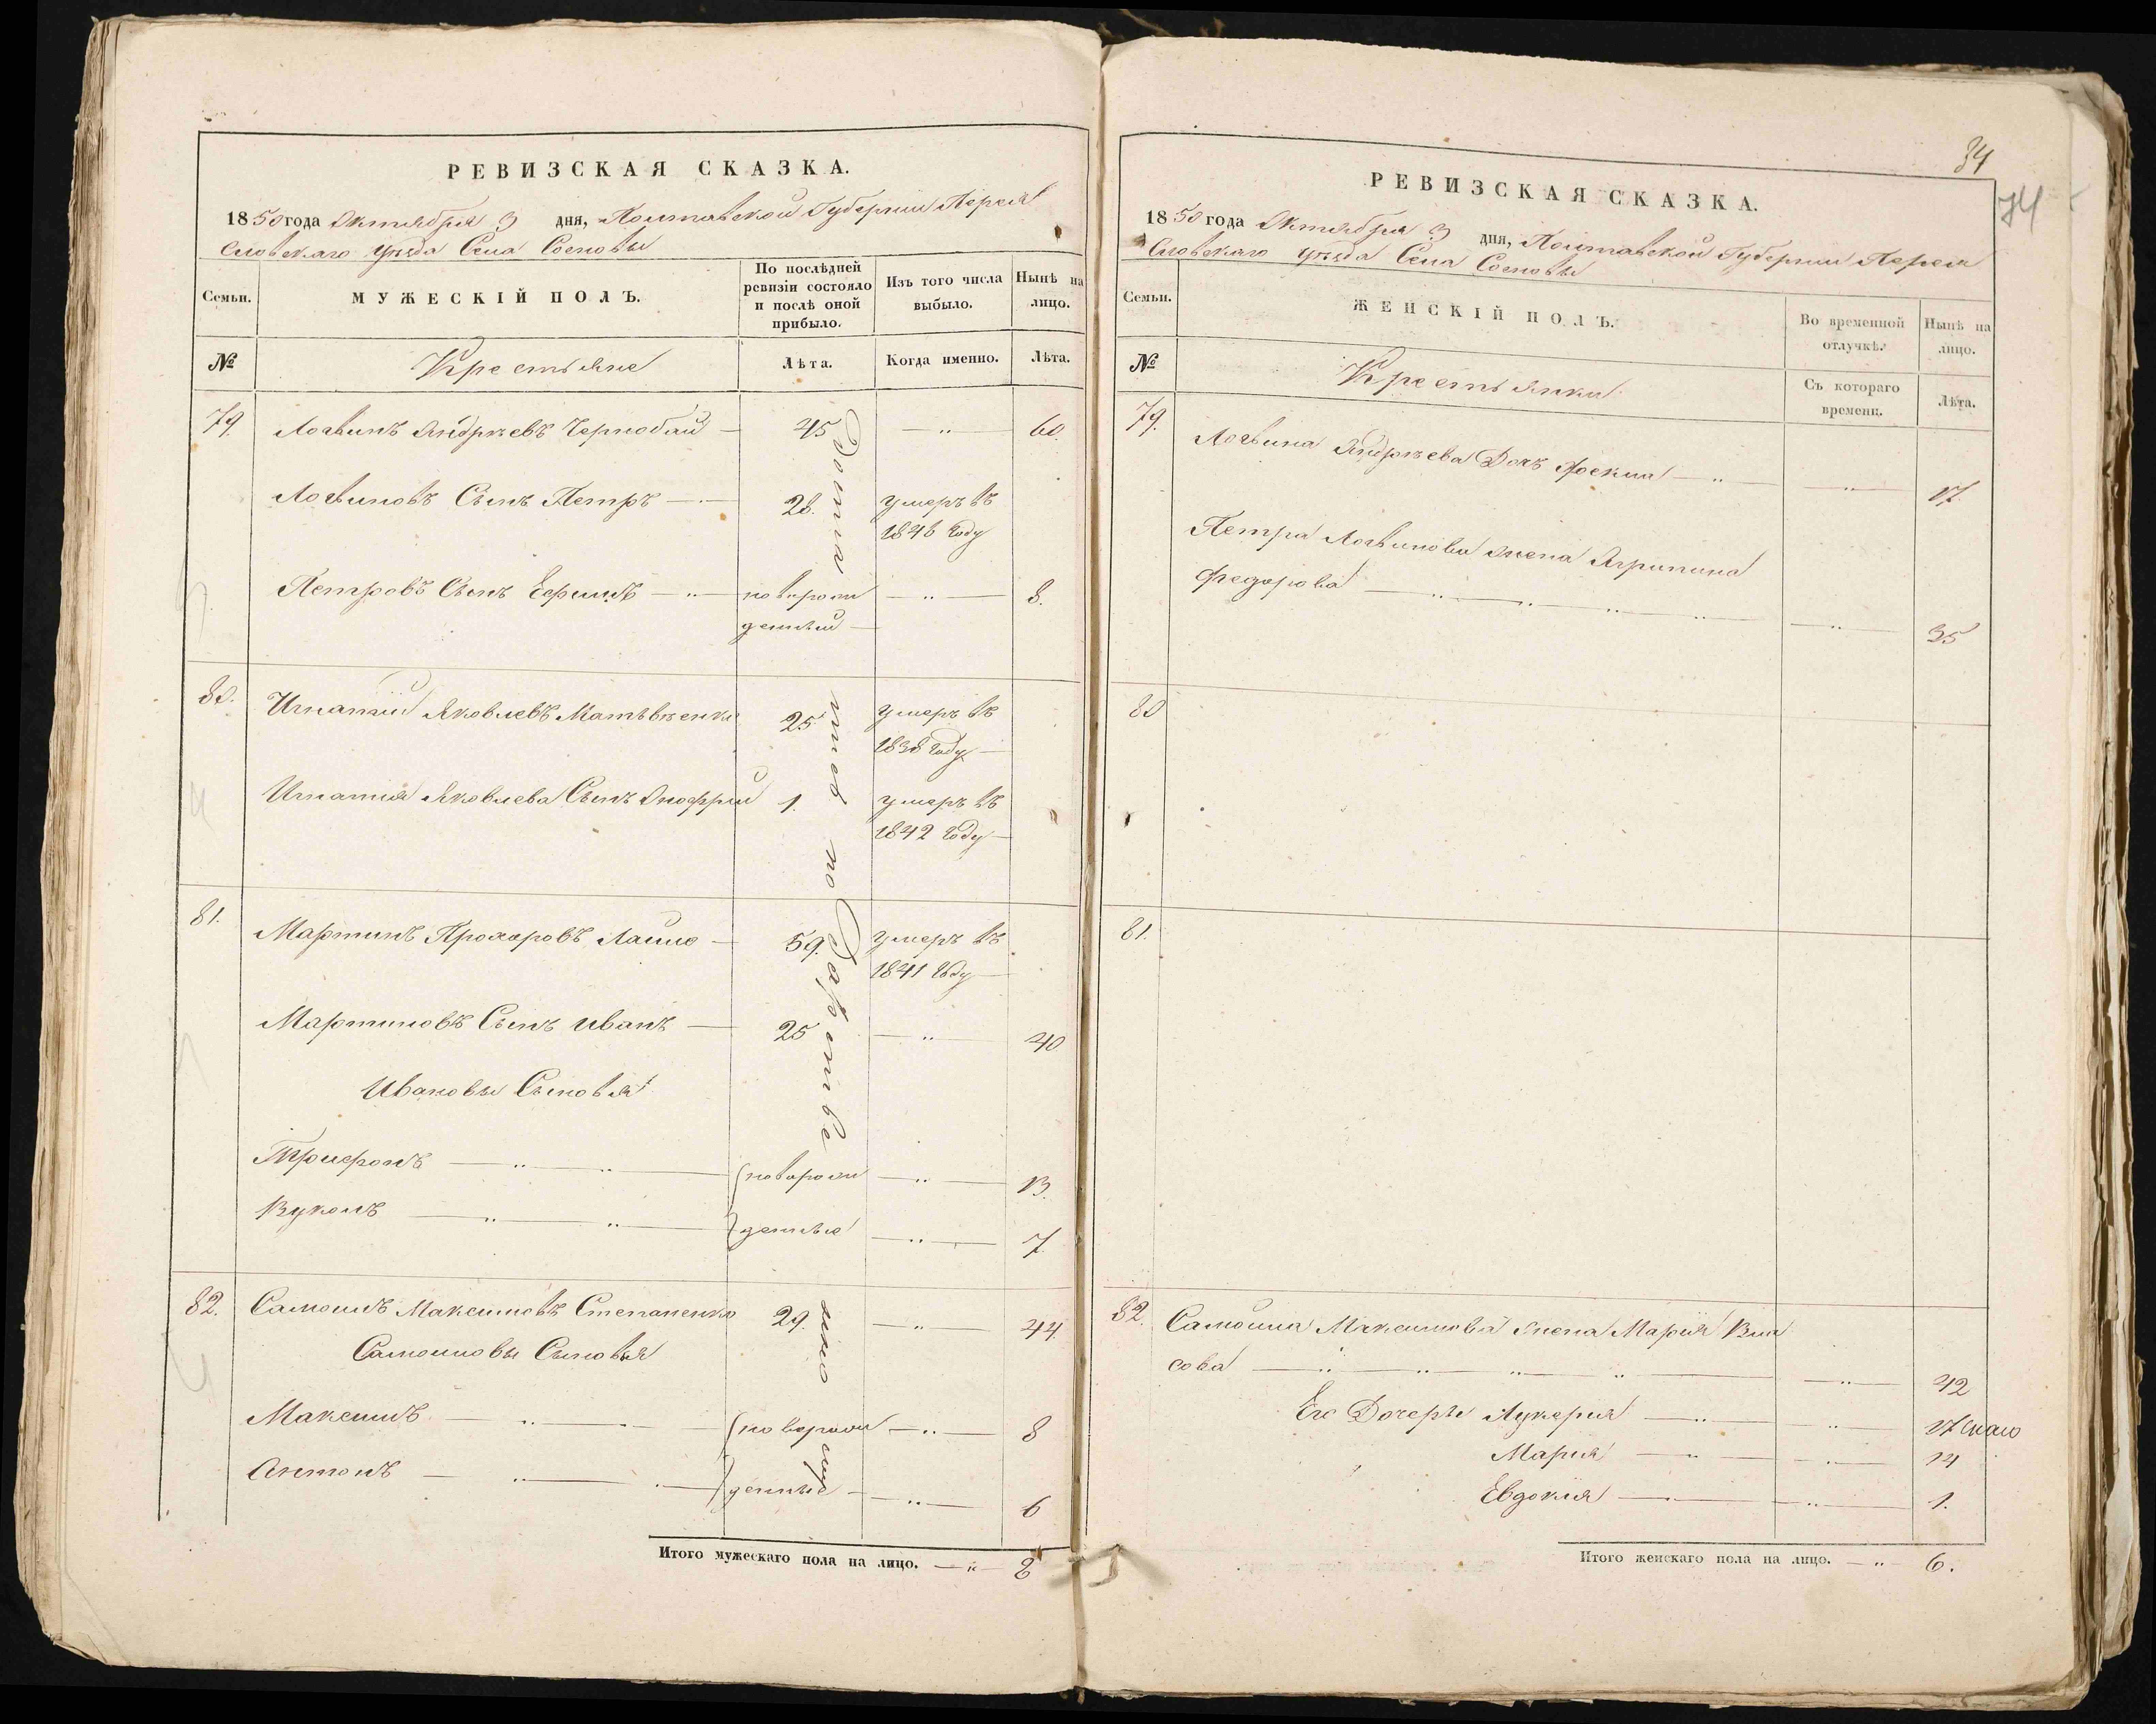 РЕВИЗСКАЯ СКАЗКА.
1850 года Октября 3 дня, Полтавской Губернии Перея
словскаго уѣзда Села Сосновы
Семьи. МУЖЕСКІЙ ПОЛЪ. По послѣдней ревизіи состояло и послѣ оной прибыло. Изъ того числа выбыло. Нынѣ на лицо.
№ Крестьяне Лѣта. Когда именно. Лѣта.
79. Логвинъ Андреевъ Чернобай 45 — " — 60.
Логвиновъ Сынъ Петръ — 28. умеръ въ
1846 году
Петровъ Сынъ Ефимъ — " — новорож — " — 8.
денный
80. Игнатій Яковлевъ Матвѣенко 25 умеръ въ
1838 году
Игнатія Яковлева Сынъ Онофрій 1. умеръ въ
1842 году
81. Мартинъ Прохоровъ 59. умеръ въ
1841 году
Мартиновъ Сынъ Иванъ — 25 — " — 40
Ивановы Сыновья
Трифонъ — " — " — новорож — " — 13.
Вуколъ — " — " — денные — " — 7.
82. Самоилъ Максимовъ Степаненко 29. — " — 44
Самоиловы Сыновья
Максимъ — " — новорож — " — 8
Антонъ — " — денные — " — 6
Итого мужескаго пола на лицо. — " — 8
34
74
РЕВИЗСКАЯ СКАЗКА.
1850 года Октября 3 дня, Полтавской Губернии Перея
словскаго уѣзда Села Сосновы
Семьи. ЖЕНСКІЙ ПОЛЪ. Во временной отлучкѣ. Нынѣ на лицо.
№ Крестьянки Съ котораго времени. Лѣта.
79. Логвина Андреева Дочь Фекла — " — 17.
Петра Логвинова жена Агрипина
Федорова — " — " — " — 35
80
81.
82. Самоила Максимова жена Марія Вла
сова — " — " — " — 42
Его Дочери Лукерия — " — 17
Мария — " — 14
Евдокия — " — 1.
Итого женскаго пола на лицо. — " — 6.